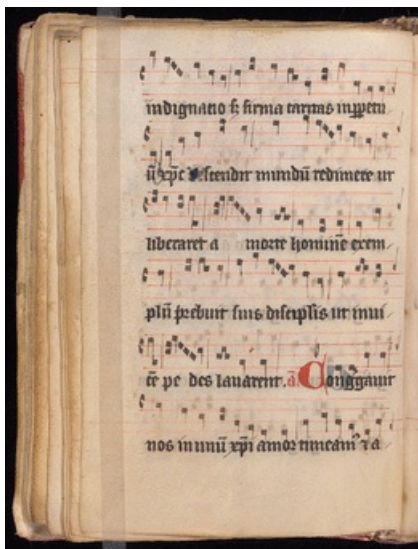 indignatio s̄ firma caritas in ꝑpetu
ū xp̄e stendit mundū redimere ut
liberaret a morte hominē exem
plū prebuit suis discip̄lis ut inui
cē pe des lauarent. a̅ Cong̅gauit
nos in unū xp̄i amor timeam⁹ ⁊ a